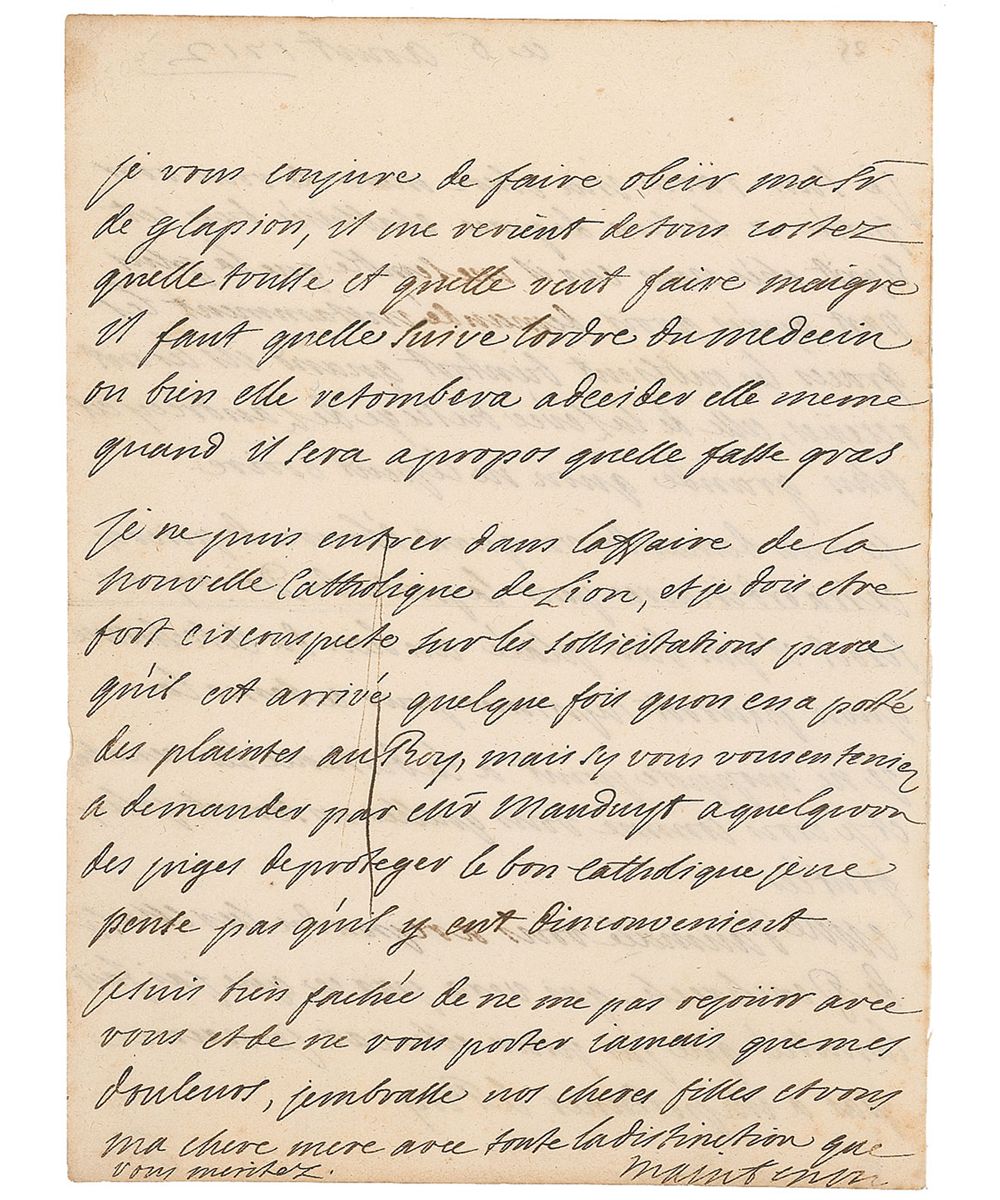 je vous conjure de faire obeïr ma Sr
de glapion, il me revient detous costez
quelle tousse et quelle veut faire maigre
il faut quelle suive lordre du medecin
ou bien elle retombera adecider elle meme
quand il sera apropos quelle fasse gras
je ne puis entrer dans laffaire de la
nouvelle Catholique de Lion, et je dois etre
fort circonspecte sur les sollicitations parce
quil est arrivé quelque fois quon en a porté
des plaintes au Roy, mais sy vous vous en teniez
a demander par Mr Manduyt a quelquun
des juges de proteger le bon Catholique je ne
pense pas quil y eut dinconvenient
je suis bien fachée de ne me pas rejoüir avec
vous et de ne vous porter jamais que mes
douleurs, jembrasse nos cheres filles et vous
ma chere mere avec toute la distinction que
vous meritez.
Maintenon